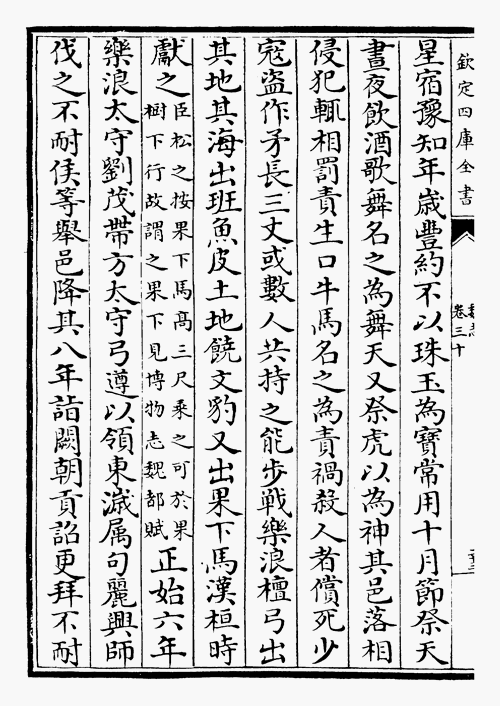 欽定四庫全書
卷三十
星宿豫知年歲豐約不以珠玉為寶常用十月節祭天
晝夜飲酒歌舞名之為舞天又祭虎以為神其邑落相
侵犯輒相罰責生口牛馬名之為責禍殺人者償死少
寇盜作矛長三丈或數人共持之能步戰樂浪檀弓出
其地其海出班魚皮土地饒文豹又出果下馬漢桓時
獻之臣松之按果下馬高三尺乘之可於果樹下行故謂之果下見博物志魏都賦正始六年
樂浪太守劉茂帶方太守弓遵以領東濊属句麗興師
伐之不耐侯等舉邑降其八年詣闕朝貢詔更拜不耐